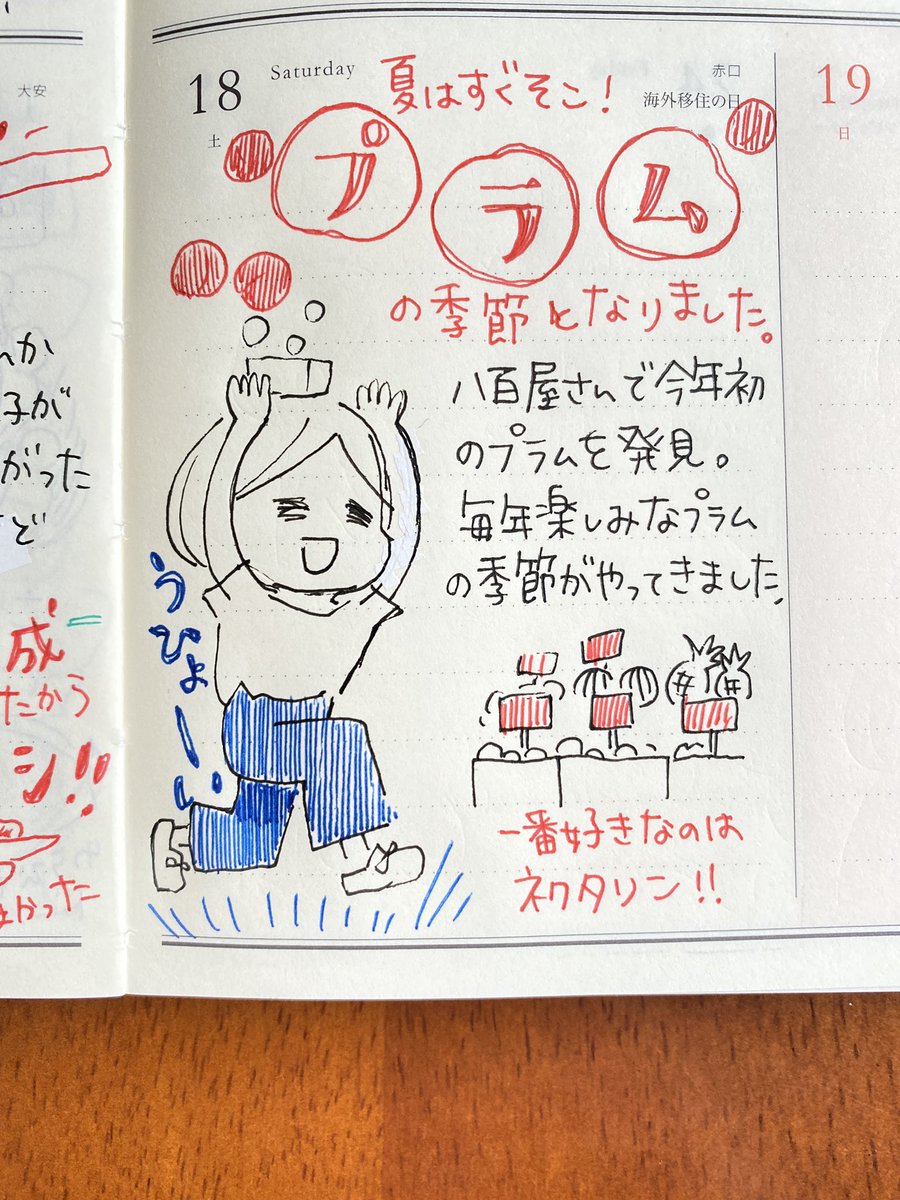 大安
んか
子が
がった
ど
成
たかう
シ!!
よかった
18
Saturday
土
赤口
海外移住の日
夏はすぐそこ!
プラム
の季節となりました。
八百屋さんで今年初
のプラムを発見。
毎年楽しみなプラム
の季節がやってきました。
うひょーい
一番好きなのは
ネクタリン!!
19
日